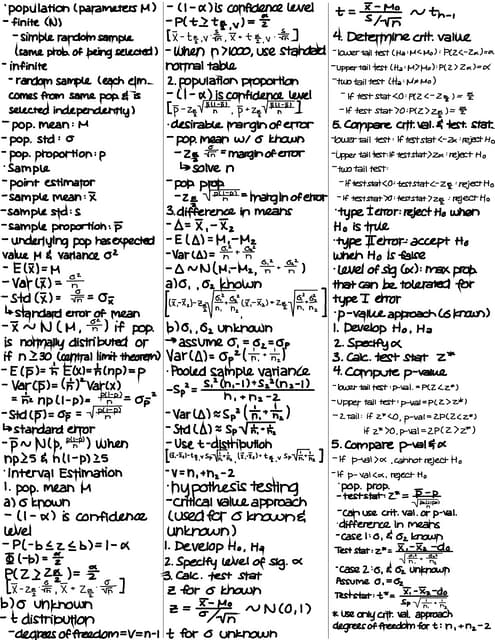 ·population (parameters M)
-finite (N)
-simple random sample
(same prob. of being selected)
-infinite
-random sample (each elm.
comes from same pop & is
selected independently)
-pop. mean: M
-pop. std: σ
-pop. proportion: p
·Sample
-point estimator
-sample mean: x̄
-sample std: s
-sample proportion: p̄
-underlying pop has expected
value M & variance σ²
-E(x̄)=M
-Var(x̄)=σ²/n
-Std(x̄)=σ/√n=σx̄
↳standard error of mean
-x̄~N(M, σ²/n) if pop.
is normally distributed or
if n≥30 (central limit theorem)
-E(p̄)=1/n E(x)=1/n(np)=p
-Var(p̄)=(1/n)²Var(x)
=1/n² np(1-p)=p(1-p)/n=σp̄²
-Std(p̄)=σp̄=√p(1-p)/n
↳standard error
-p̄~N(p, p(1-p)/n) when
np≥5 & n(1-p)≥5
·Interval Estimation
1. pop. mean M
a) σ known
-(1-α) is confidence
level
-P(-b≤z≤b)=1-α
Φ(-b)=α/2
P(Z≥Zα/2)=α/2
[x̄-Zα/2 σ/√n, x̄+Zα/2 σ/√n]
b) σ unknown
-t distribution
-degrees of freedom=V=n-1
-(1-α) is confidence level
-P(t≥tα/2,v)=α/2
[x̄-tα/2,v s/√n, x̄+tα/2,v s/√n]
-When n>1000, use standard
normal table
2. population proportion
-(1-α) is confidence level
·desirable margin of error
-pop. mean w/ σ known
-Zα/2 σ/√n=margin of error
↳solve n
-pop prop
-Zα/2√p(1-p)/n=margin of error
3. difference in means
-Δ=x̄₁-x̄₂
-E(Δ)=M₁-M₂
a) σ₁, σ₂ known
b) σ₁, σ₂ unknown
→assume σ₁=σ₂=σp
·Pooled sample variance
-Sp²=s₁²(n₁-1)+s₂²(n₂-1)/n₁+n₂-2
-Use t-distribution
-v=n₁+n₂-2
·hypothesis testing
-critical value approach
(used for σ known &
unknown)
1. Develop H₀, Hₐ
2. Specify level of sig. α
3. Calc. test stat
Z for σ known
z=x̄-M₀/σ/√n ~N(0,1)
t for σ unknown
t=x̄-M₀/s/√n ~tn-1
4. Determine crit. value
-lower tail test (Hₐ:M<M₀): P(Z<-Zα)=α
-upper tail test (Hₐ:M>M₀): P(Z>Zα)=α
-two tail test (Hₐ:M≠M₀)
-if test stat<0: P(Z<-Zα/2)=α/2
-if test stat>0: P(Z>Zα/2)=α/2
5. Compare crit. val. & test. stat.
-lower tail test: if test stat<-Zα: reject H₀
-upper tail test: if test stat>Zα: reject H₀
-two tail test:
-if test stat<0: test stat<-Zα/2: reject H₀
-if test stat>0: test stat>Zα/2: reject H₀
·type I error: reject H₀ when
H₀ is true
·type II error: accept H₀
when H₀ is false
·level of sig (α): max prob.
that can be tolerated for
type I error
·p-value approach (σ known)
1. Develop H₀, Hₐ
2. Specify α
3. Calc. test stat Z*
4. Compute p-value
-lower tail test: p-val.=P(Z<Z*)
-upper tail test: p-val=P(Z>Z*)
-2 tail: if Z*<0, p-val=2P(Z<Z*)
if Z*>0, p-val=2P(Z>Z*)
5. Compare p-val & α
-if p-val>α, cannot reject H₀
-if p-val<α, reject H₀
·pop. prop.
-test stat: z*=p̄-p/√p(1-p)/n
-can use crit. val. or p-val.
·difference in means
-case 1: σ₁ & σ₂ known
Test stat: z*=x̄₁-x̄₂-d₀/√σ₁²/n₁+σ₂²/n₂
-case 2: σ₁ & σ₂ unknown
Assume σ₁=σ₂
Test stat: t*=x̄₁-x̄₂-d₀/Sp√1/n₁+1/n₂
* use only critical val approach
degrees of freedom for t: n₁+n₂-2